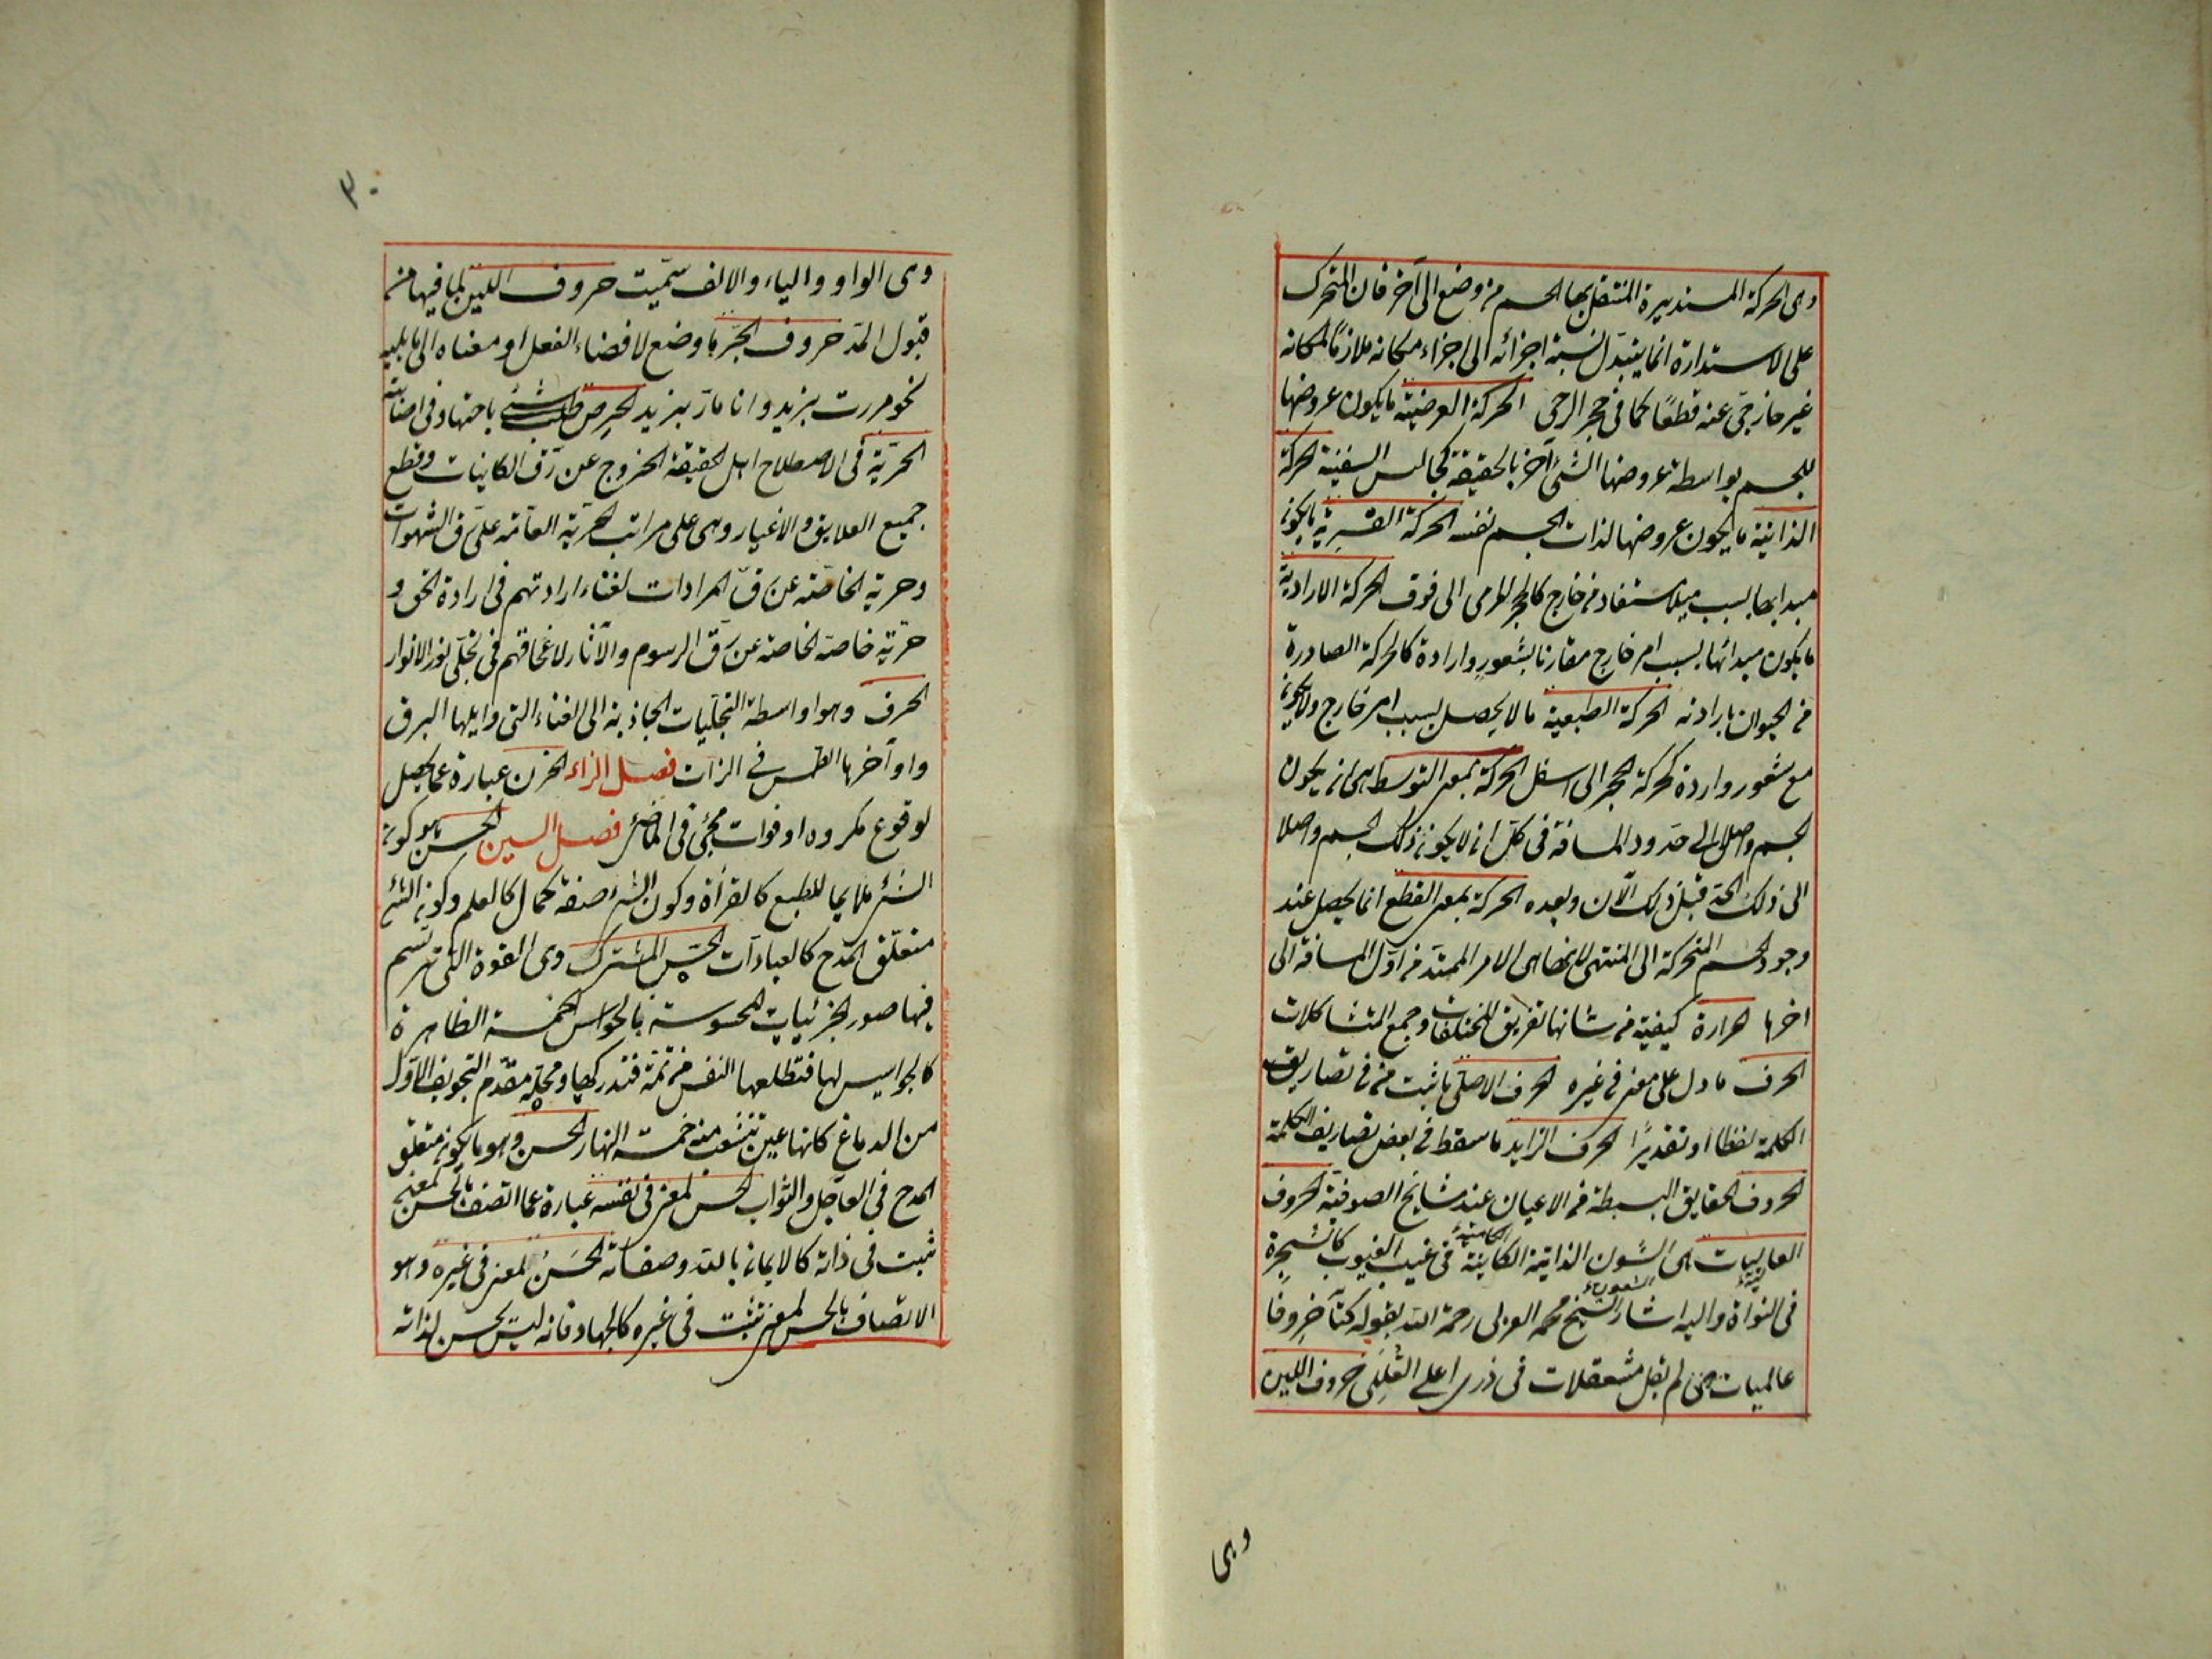 وهى الحركة المستديرة المنتقل بها الجسم من وضع الى آخر فان المتحرك
على الاستدارة انما يتبدل نسبة اجزائه الى اجزاء مكانه ملازمًا لمكانه
غير خارجى عنه قطعًا كما فى حجر الرحى الحركة العرضية ما يكون عروضها
للجسم بواسطة عروضها الشئ آخر بالحقيقة كجالس السفينة الحركة
الذاتية ما يكون عروضها لذات الجسم نفسه الحركة القسرية ما يكون
مبدأها بسبب ميل مستفاد من خارج كالحجر المرمى الى فوق الحركة الارادية
ما يكون مبدائها بسبب امر خارج مقارنا بشعور وارادة كالحركة الصادرة
من الحيوان بارادته الحركة الطبعية ما لا يحصل بسبب امر خارج ولا يكون
مع شعور واردة كحركة الحجر الى اسفل الحركة بمعنى التوسط هى ان يكون
الجسم واصلا الى حدود المسافة فى كل ان لا يكون ذلك الجسم واصلا
الى ذلك الحد قبل ذلك الآن وبعده الحركة بمعنى القطع انما يحصل عند
وجود الجسم المتحركة الى المنتهى لانها هى الامر الممتد من اول المسافة الى
اخرها الحرارة كيفية من شانها تفريق المختلفات وجمع المتشاكلات
الحرف ما دل على معنى فى غيره الحرف الاصلى ما ثبت من فى تصاريف
الكلمة لفظا او تقديرًا الحرف الزايد ما سقط فى بعض تصاريف الكلمة
الحروف الحقايق البسيطة من الاعيان عند مشايخ الصوفية الحروف
العاليات هى الشون الذاتية الكاينة فى غيب الغيوب كالشجرة
فى النواة واليه اشار الشيخ محمد العربى رحمة الله بقوله كنّا حروفًا
عاليات لم نقل متعلقات فى ذرى اعلى القلل حروف اللين
وهى
٣٠
وهى الواو والياء والالف سمّيت حروف اللين لما فيها من
قبول المدّ حروف الجرّ ما وضع لافضاء الفعل او معناه الى ما يليه
نحو مررت بزيد وانا مارّ بزيد الحرص طلب شئ باجتهاد فى اصابته
الحرّية فى الاصطلاح اهل الحقيقة الخروج عن رق الكاينات وقطع
جميع العلايق والاغيار وهى على مراتب حرية العامّة عن رق الشهوات
وحرية الخاصّة عن رق المرادات لفناء ارادتهم فى ارادة الحق و
حرّية خاصة الخاصة عن رق الرسوم والآثار لانمحاقهم فى تجلّى نور الانوار
الحرف وهو اواسطة التجلّيات الجاذبة الى الفناء التى وايلها البرق
واوآخرها الطمس فى الذات فصل الزاء الحزن عبارة عما يحصل
لوقوع مكروه او فوات محبى فى الماضى فصل السين الحسن هو كون
الشئ ملايما للطبع كالفرأة وكون الشئ صفة كمال كالعلم وكون الشئ
متعلّق المدح كالعبادات الحس المشترك وهى القوة التى ترتسم
فيها صور الجزئيات المحسوسة فالحواس الخمسة الظاهرة
كالجواسيس لها فتطلعها النفس من ثمة فتدركها ومحله مقدّم التجويف الاول
من الدماغ كانها عين تتشعب منه خمسة انهار الحسن وهو ما يكون متعلق
المدح فى العاجل والثواب الحسن لمعنى فى نفسه عبارة عما اتصف بالحسن لمعنى
ثبت فى ذاته كالايمان بالله وصفاته الحَسَنُ لمعنى فى غيره وهو
الاتصاف بالحسن لمعنى ثبت فى غيره كالجهاد فانه ليس بحسن لذاته